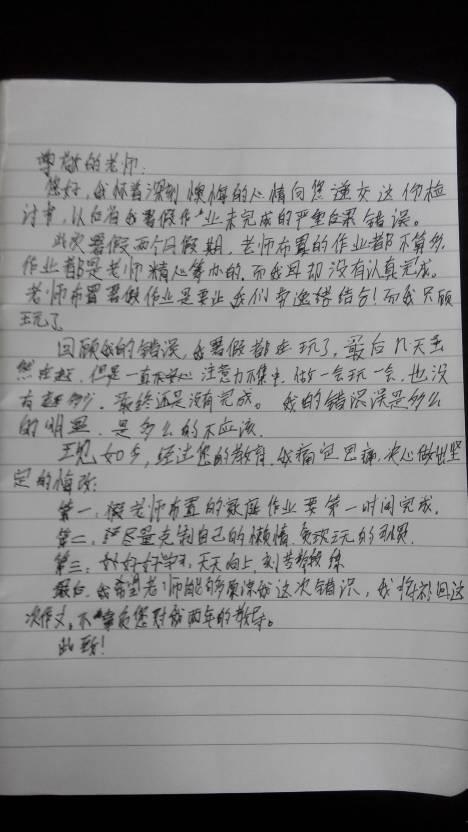 尊敬的老师:
您好,我怀着深刻懊悔的心情向您递交这份检
讨书,认识到我暑假作业未完成的严重后果错误。
此次暑假两个月假期,老师布置的作业都不算多,
作业都是老师精心筹办的,而我却没有认真完成。
老师布置暑假作业是要让我们劳逸结合!而我只顾
玩了
回顾我的错误,我暑假都在玩了,最后几天虽
然在赶,但是一直不安心 注意力不集中,做一会玩一会,也没
有赶多少,最终还是没有完成。我的错误是多么
的明显,是多么的不应该.
现如今,经过您的教育,我痛定思痛,决心做出坚
定的悔改:
第一,老师布置的家庭作业要第一时间完成.
第二,尽量克制自己的懒惰,贪玩的习惯.
第三:好好学习,天天向上,刻苦锻练
最后,我希望老师能够原谅我这次错识,我将补回这
次作文,不辜负您对我两年的教导。
此致!